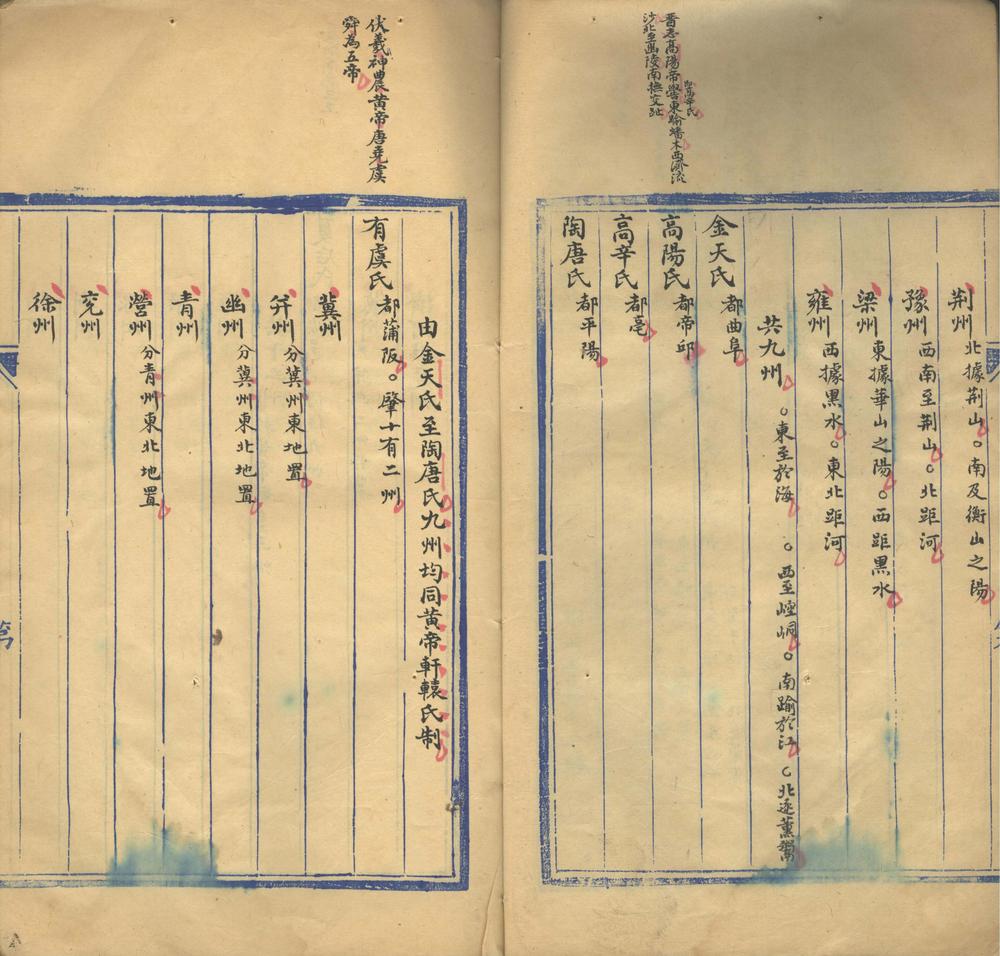 晋志高陽帝嚳東踰蟠木西濟流
沙北至幽陵南撫交趾
荆州 北據荆山。南及衡山之陽
豫州 西南至荆山。北距河
梁州 東據華山之陽。西距黑水
雍州 西據黑水。東北距河
共九州 。東至於海 。西至崆峒。南踰於江。北逐薰鬻
金天氏 都曲阜
高陽氏 都帝邱
高辛氏 都亳
陶唐氏 都平陽
伏羲神農黄帝唐堯虞
舜為五帝
由金天氏至陶唐氏九州均同黄帝軒轅氏制
有虞氏 都蒲阪。肇十有二州
冀州
并州 分冀州東地置
幽州 分冀州東北地置
青州
營州 分青州東北地置
兗州
徐州